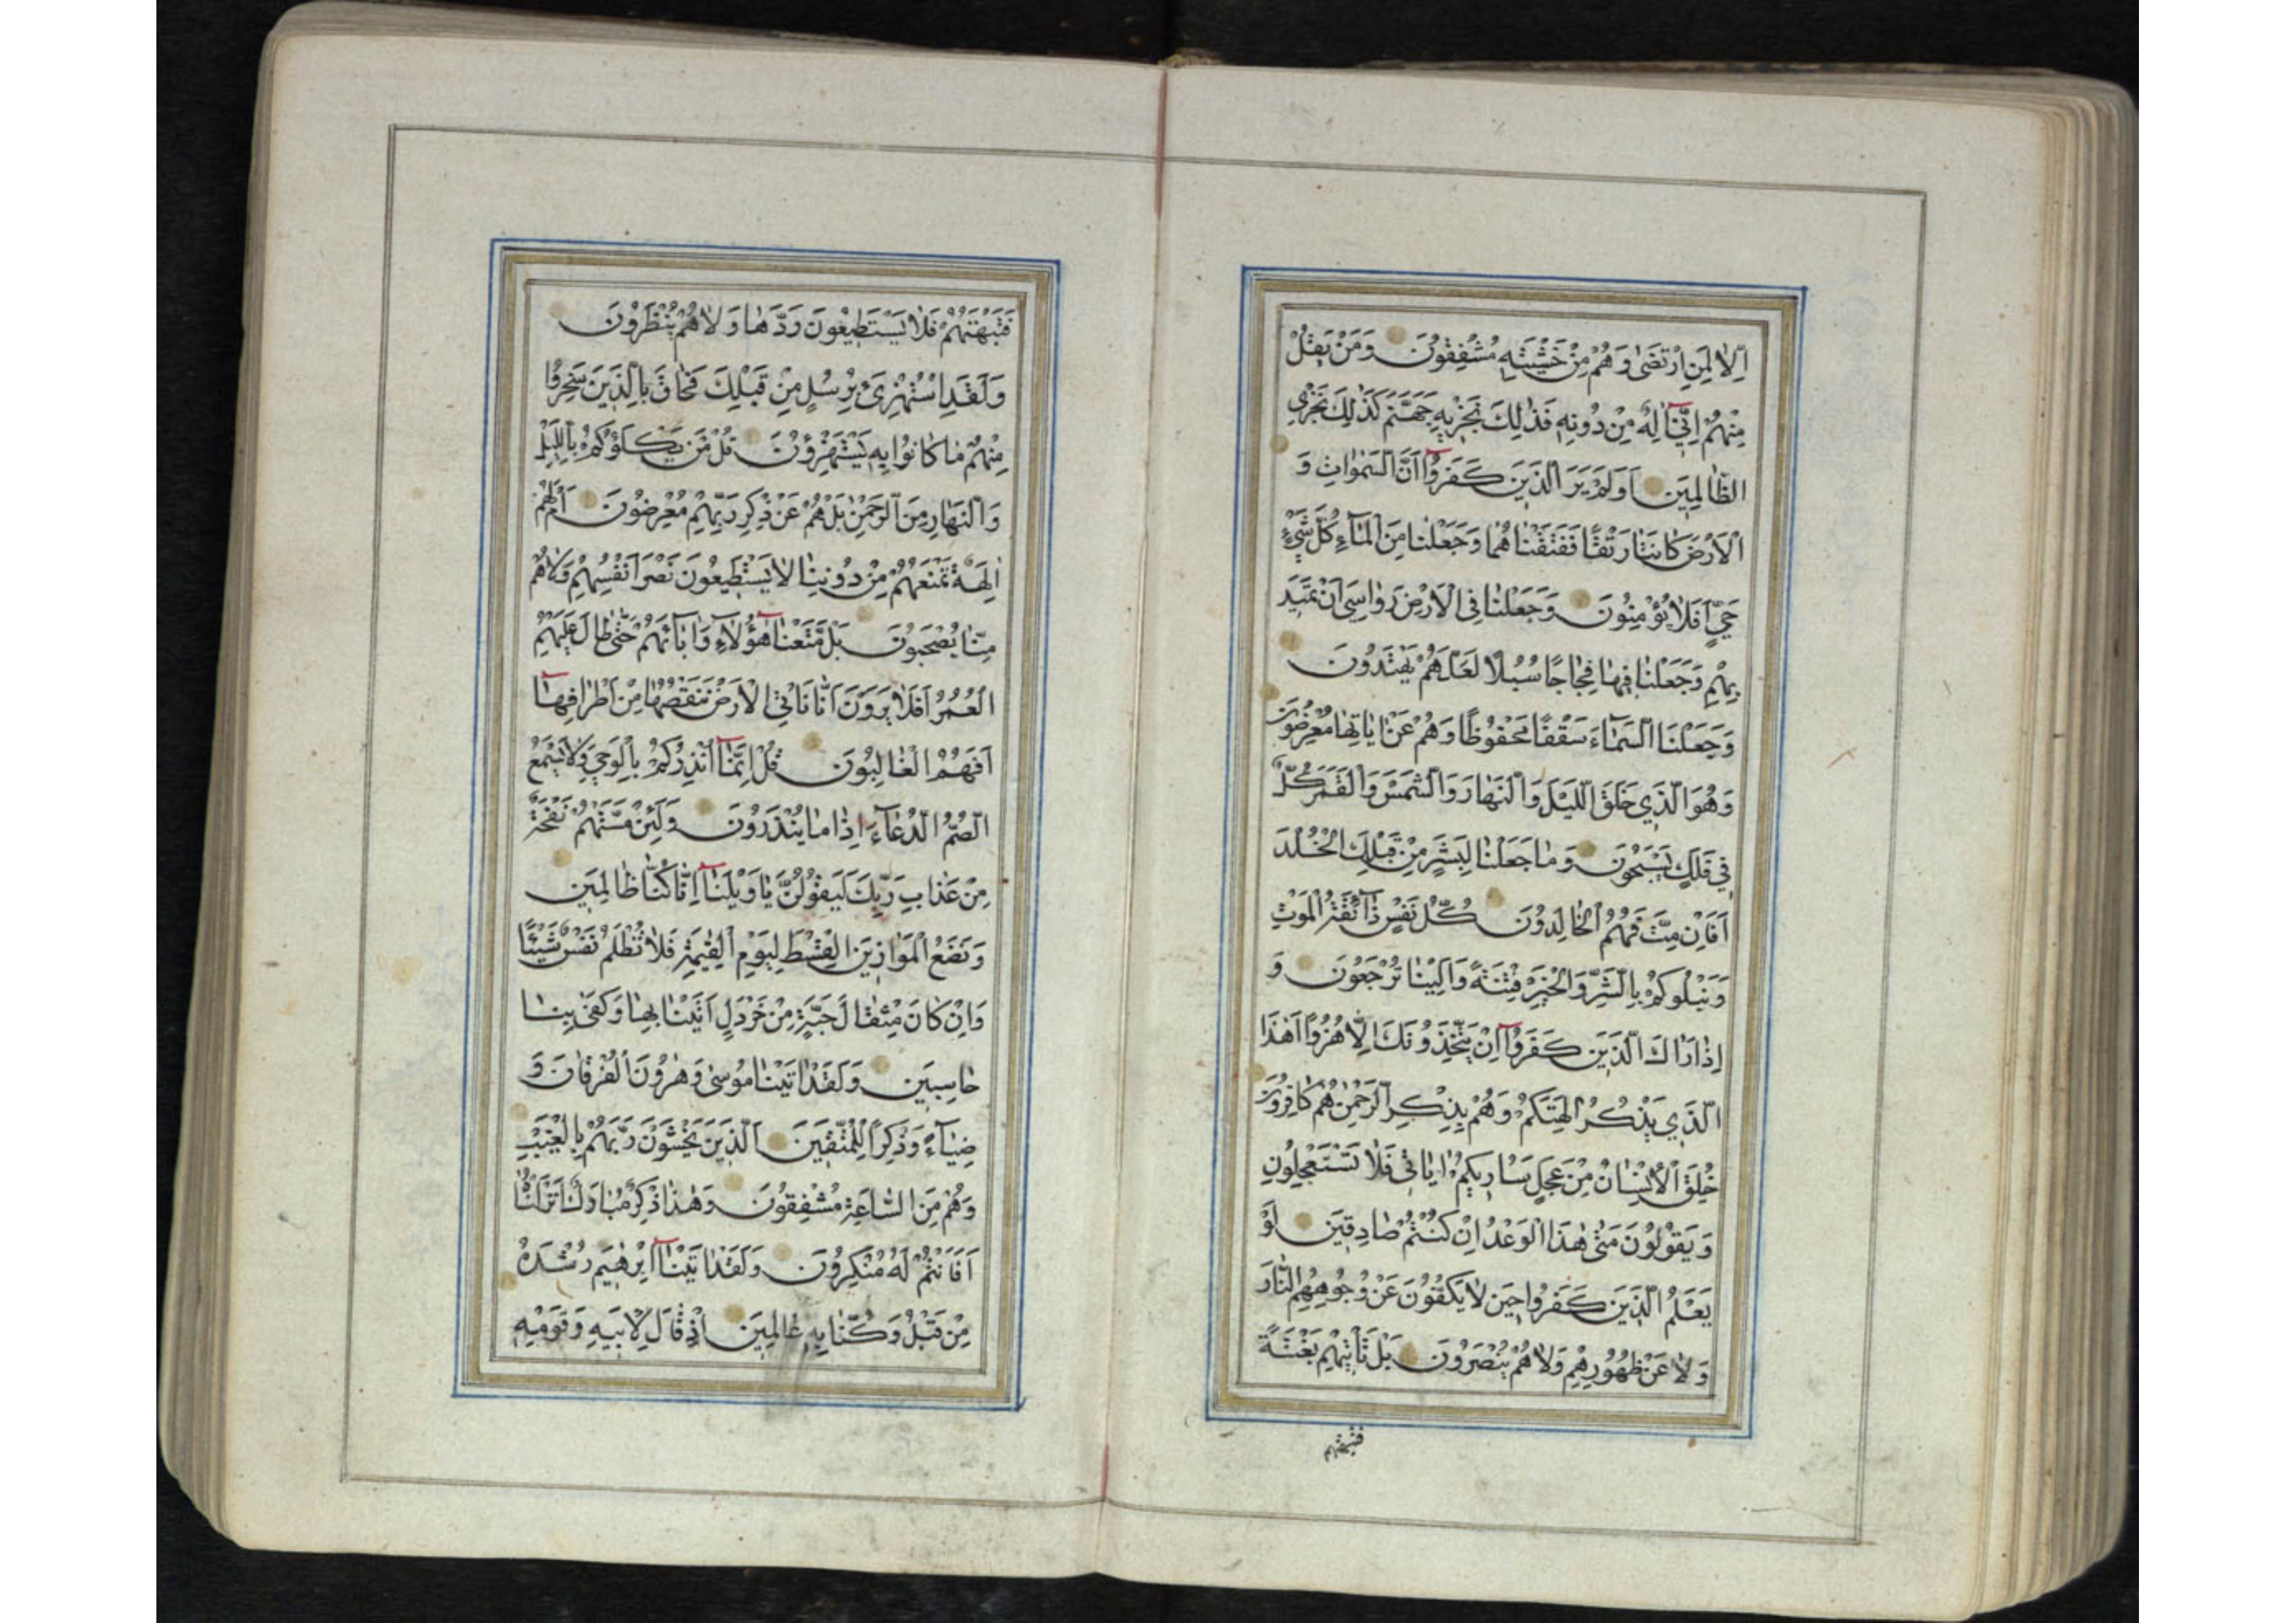 اِلّا لِمَنِ ارْتَضٰى وَهُمْ مِنْ خَشْيَتِهِ مُشْفِقُونَ وَمَنْ يَقُلْ
مِنْهُمْ اِنّٓي اِلٰهٌ مِنْ دُونِهِ فَذٰلِكَ نَجْزِيهِ جَهَنَّمَ كَذٰلِكَ نَجْزِي
الظّالِمِينَ اَوَلَمْ يَرَ الَّذِينَ كَفَرُوٓا اَنَّ السَّمٰوٰاتِ وَ
الْاَرْضَ كَانَتٰا رَتْقًا فَفَتَقْنٰاهُمٰا وَجَعَلْنٰا مِنَ الْمٰٓاءِ كُلَّ شَيْءٍ
حَيٍّ اَفَلٰا يُؤْمِنُونَ وَجَعَلْنٰا فِي الْاَرْضِ رَوٰاسِيَ اَنْ تَمِيدَ
بِهِمْ وَجَعَلْنٰا فِيهٰا فِجٰاجًا سُبُلًا لَعَلَّهُمْ يَهْتَدُونَ
وَجَعَلْنَا السَّمٰٓاءَ سَقْفًا مَحْفُوظًا وَهُمْ عَنْ اٰيٰاتِهٰا مُعْرِضُونَ
وَهُوَ الَّذِي خَلَقَ اللَّيْلَ وَالنَّهٰارَ وَالشَّمْسَ وَالْقَمَرَ كُلٌّ
فِي فَلَكٍ يَسْبَحُونَ وَمٰا جَعَلْنٰا لِبَشَرٍ مِنْ قَبْلِكَ الْخُلْدَ
اَفَاِنْ مِتَّ فَهُمُ الْخٰالِدُونَ كُلُّ نَفْسٍ ذٰٓائِقَةُ الْمَوْتِ
وَنَبْلُوكُمْ بِالشَّرِّ وَالْخَيْرِ فِتْنَةً وَاِلَيْنٰا تُرْجَعُونَ وَ
اِذٰا رَاٰكَ الَّذِينَ كَفَرُوٓا اِنْ يَتَّخِذُونَكَ اِلّٰا هُزُوًا اَهٰذَا
الَّذِي يَذْكُرُ اٰلِهَتَكُمْ وَهُمْ بِذِكْرِ الرَّحْمٰنِ هُمْ كٰافِرُونَ
خُلِقَ الْاِنْسٰانُ مِنْ عَجَلٍ سَاُرِيكُمْ اٰيٰاتِي فَلٰا تَسْتَعْجِلُونِ
وَيَقُولُونَ مَتٰى هٰذَا الْوَعْدُ اِنْ كُنْتُمْ صٰادِقِينَ لَوْ
يَعْلَمُ الَّذِينَ كَفَرُوا حِينَ لٰا يَكُفُّونَ عَنْ وُجُوهِهِمُ النّٰارَ
وَلٰا عَنْ ظُهُورِهِمْ وَلٰا هُمْ يُنْصَرُونَ بَلْ تَأْتِيهِمْ بَغْتَةً
فتبهتهم
فَتَبْهَتُهُمْ فَلٰا يَسْتَطِيعُونَ رَدَّهٰا وَلٰا هُمْ يُنْظَرُونَ
وَلَقَدِ اسْتُهْزِئَ بِرُسُلٍ مِنْ قَبْلِكَ فَحٰاقَ بِالَّذِينَ سَخِرُوا
مِنْهُمْ مٰا كٰانُوا بِهِ يَسْتَهْزِؤُنَ قُلْ مَنْ يَكْلَؤُكُمْ بِاللَّيْلِ
وَالنَّهٰارِ مِنَ الرَّحْمٰنِ بَلْ هُمْ عَنْ ذِكْرِ رَبِّهِمْ مُعْرِضُونَ اَمْ لَهُمْ
اٰلِهَةٌ تَمْنَعُهُمْ مِنْ دُونِنٰا لٰا يَسْتَطِيعُونَ نَصْرَ اَنْفُسِهِمْ وَلٰا هُمْ
مِنّٰا يُصْحَبُونَ بَلْ مَتَّعْنٰا هٰٓؤُلٰاءِ وَاٰبٰٓائَهُمْ حَتّٰى طٰالَ عَلَيْهِمُ
الْعُمُرُ اَفَلٰا يَرَوْنَ اَنّٰا نَأْتِي الْاَرْضَ نَنْقُصُهٰا مِنْ اَطْرٰافِهٰٓا
اَفَهُمُ الْغٰالِبُونَ قُلْ اِنَّمٰٓا اُنْذِرُكُمْ بِالْوَحْيِ وَلٰا يَسْمَعُ
الصُّمُّ الدُّعٰٓاءَ اِذٰا مٰا يُنْذَرُونَ وَلَئِنْ مَسَّتْهُمْ نَفْحَةٌ
مِنْ عَذٰابِ رَبِّكَ لَيَقُولُنَّ يٰا وَيْلَنٰٓا اِنّٰا كُنّٰا ظٰالِمِينَ
وَنَضَعُ الْمَوٰازِينَ الْقِسْطَ لِيَوْمِ الْقِيٰمَةِ فَلٰا تُظْلَمُ نَفْسٌ شَيْئًا
وَاِنْ كٰانَ مِثْقٰالَ حَبَّةٍ مِنْ خَرْدَلٍ اَتَيْنٰا بِهٰا وَكَفٰى بِنٰا
حٰاسِبِينَ وَلَقَدْ اٰتَيْنٰا مُوسٰى وَهٰرُونَ الْفُرْقٰانَ وَ
ضِيٰٓاءً وَذِكْرًا لِلْمُتَّقِينَ الَّذِينَ يَخْشَوْنَ رَبَّهُمْ بِالْغَيْبِ
وَهُمْ مِنَ السّٰاعَةِ مُشْفِقُونَ وَهٰذٰا ذِكْرٌ مُبٰارَكٌ اَنْزَلْنٰاهُ
اَفَاَنْتُمْ لَهُ مُنْكِرُونَ وَلَقَدْ اٰتَيْنٰٓا اِبْرٰهِيمَ رُشْدَهُ
مِنْ قَبْلُ وَكُنّٰا بِهِ عٰالِمِينَ اِذْ قٰالَ لِاَبِيهِ وَقَوْمِهِ